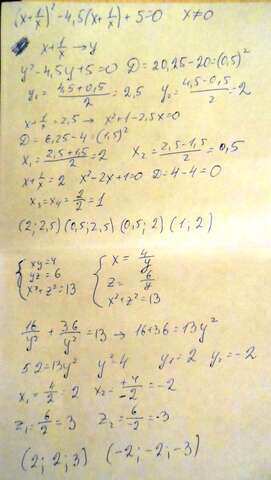 (x+1/x)² -4,5(x+1/x)+5=0   x≠0
x+1/x → y
y²-4,5y+5=0   D=20,25-20=(0,5)²
y₁=(4,5+0,5)/2=2,5   y₂=(4,5-0,5)/2=2
x+1/x=2,5 → x²+1-2,5x=0
D=6,25-4=(1,5)²
x₁=(2,5+1,5)/2=2   x₂=(2,5-1,5)/2=0,5
x+1/x=2   x²-2x+1=0   D=4-4=0
x₃=x₄=2/2=1
(2; 2,5) (0,5; 2,5) (0,5; 2) (1, 2)
{ xy=4   { x=4/y
yz=6   z=6/y
x²+z²=13   x²+z²=13
16/y²+36/y²=13 → 16+36=13y²
52=13y²   y²=4   y₁=2   y₂=-2
x₁=4/2=2   x₂=+4/-2=-2
z₁=6/2=3   z₂=6/-2=-3
(2; 2; 3)   (-2; -2; -3)